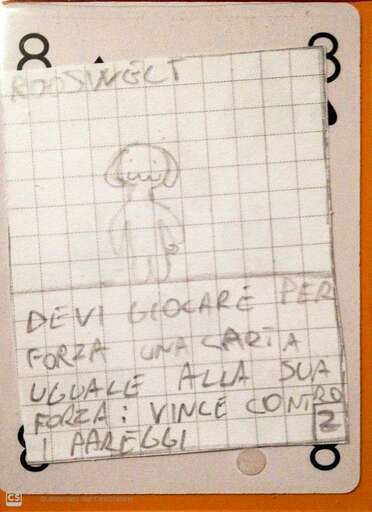 8
8
ROOSWELT
DEVI GIOCARE PER
FORZA UNA CARTA
UGUALE ALLA SUA
FORZA: VINCE CONTRO
I PAREGGI
2
8
8
CS